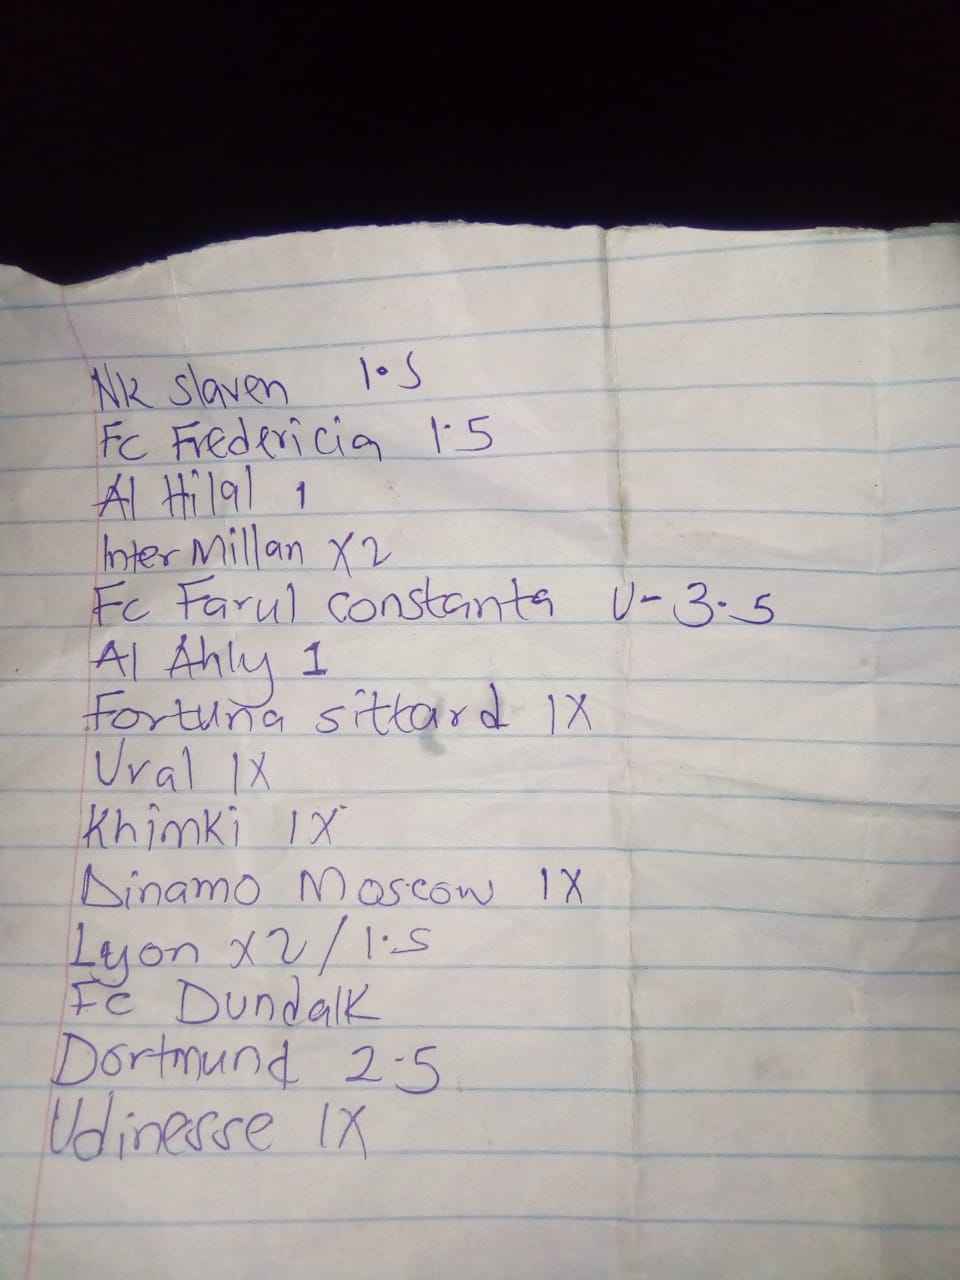 NK slaven 1.5
Fc Fredericia 1.5
Al Hilal 1
Inter Millan X2
Fc Farul constanta U-3.5
Al Ahly 1
Fortuna sittard 1X
Ural 1X
Khimki 1X
Dinamo Moscow 1X
Lyon X2/1.5
Fc Dundalk
Dortmund 2.5
Udinesse 1X